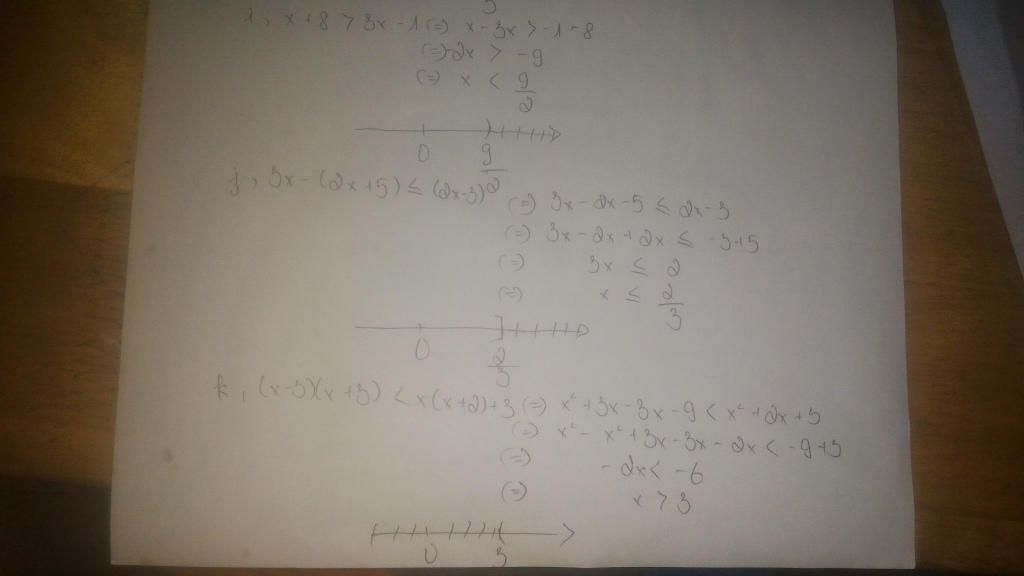 i, x + 8 > 3x - 1 (=) x - 3x > -1 - 8
(=) -2x > -9
(=) x < 9/2
0 9/2
j, 3x - (2x + 5) ≤ (2x - 3)
(=) 3x - 2x - 5 ≤ 2x - 3
(=) 3x - 2x + 2x ≤ -3 + 5
(=) 3x ≤ 2
(=) x ≤ 2/3
0 2/3
k, (x - 3)(x + 3) < x(x + 2) + 3 (=) x² + 3x - 3x - 9 < x² + 2x + 3
(=) x² - x² + 3x - 3x - 2x < -9 + 3
(=) -2x < -6
(=) x > 3
0 3